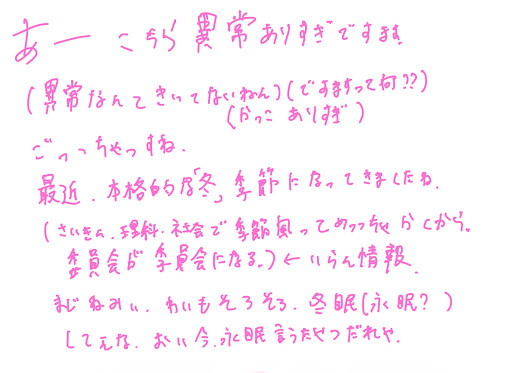 あー こちら異常ありすぎですます
(異常なんてきいてないねん)(ですますって何??)
(かっこ ありすぎ)
ごっっちゃっすね.
最近、本格的な「冬」季節になってきましたね.
(さいきん、理科・社会で季節風ってめっっちゃ かくから。
委員会が季員会になる。)←いらん情報
まじねみぃ、わいもそろそろ、冬眠(永眠?)
してえな、おい今、永眠言うたやつだれや.